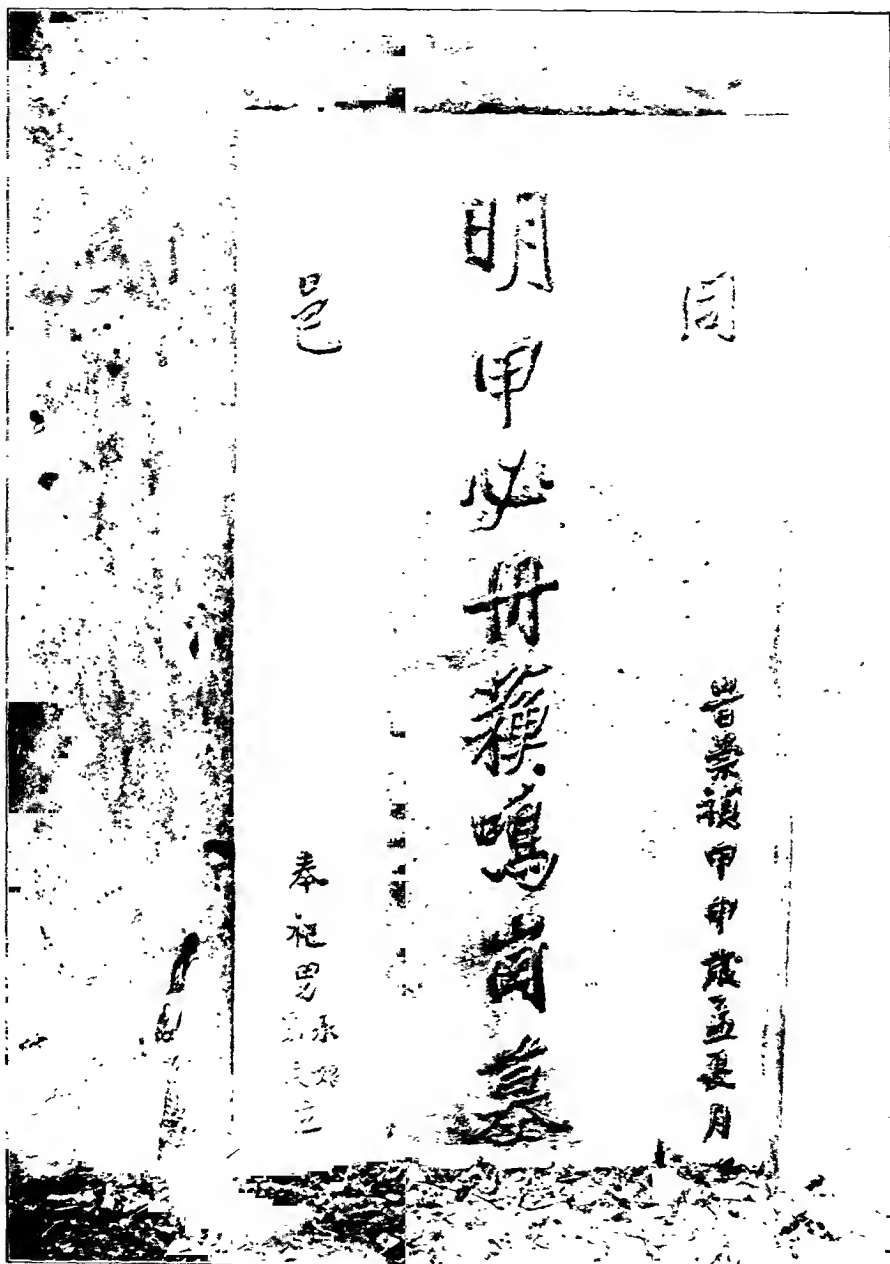 同
旹崇禎甲申歲孟夏月
明甲必丹蘓鳴崗墓
邑
奉祀男
立